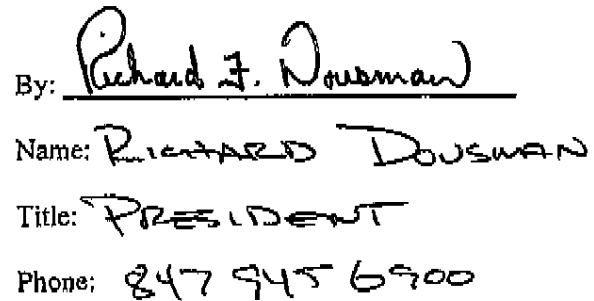 By: Richard F. Dousman
Name: RICHARD DOUSMAN
Title: PRESIDENT
Phone: 847 945 6900